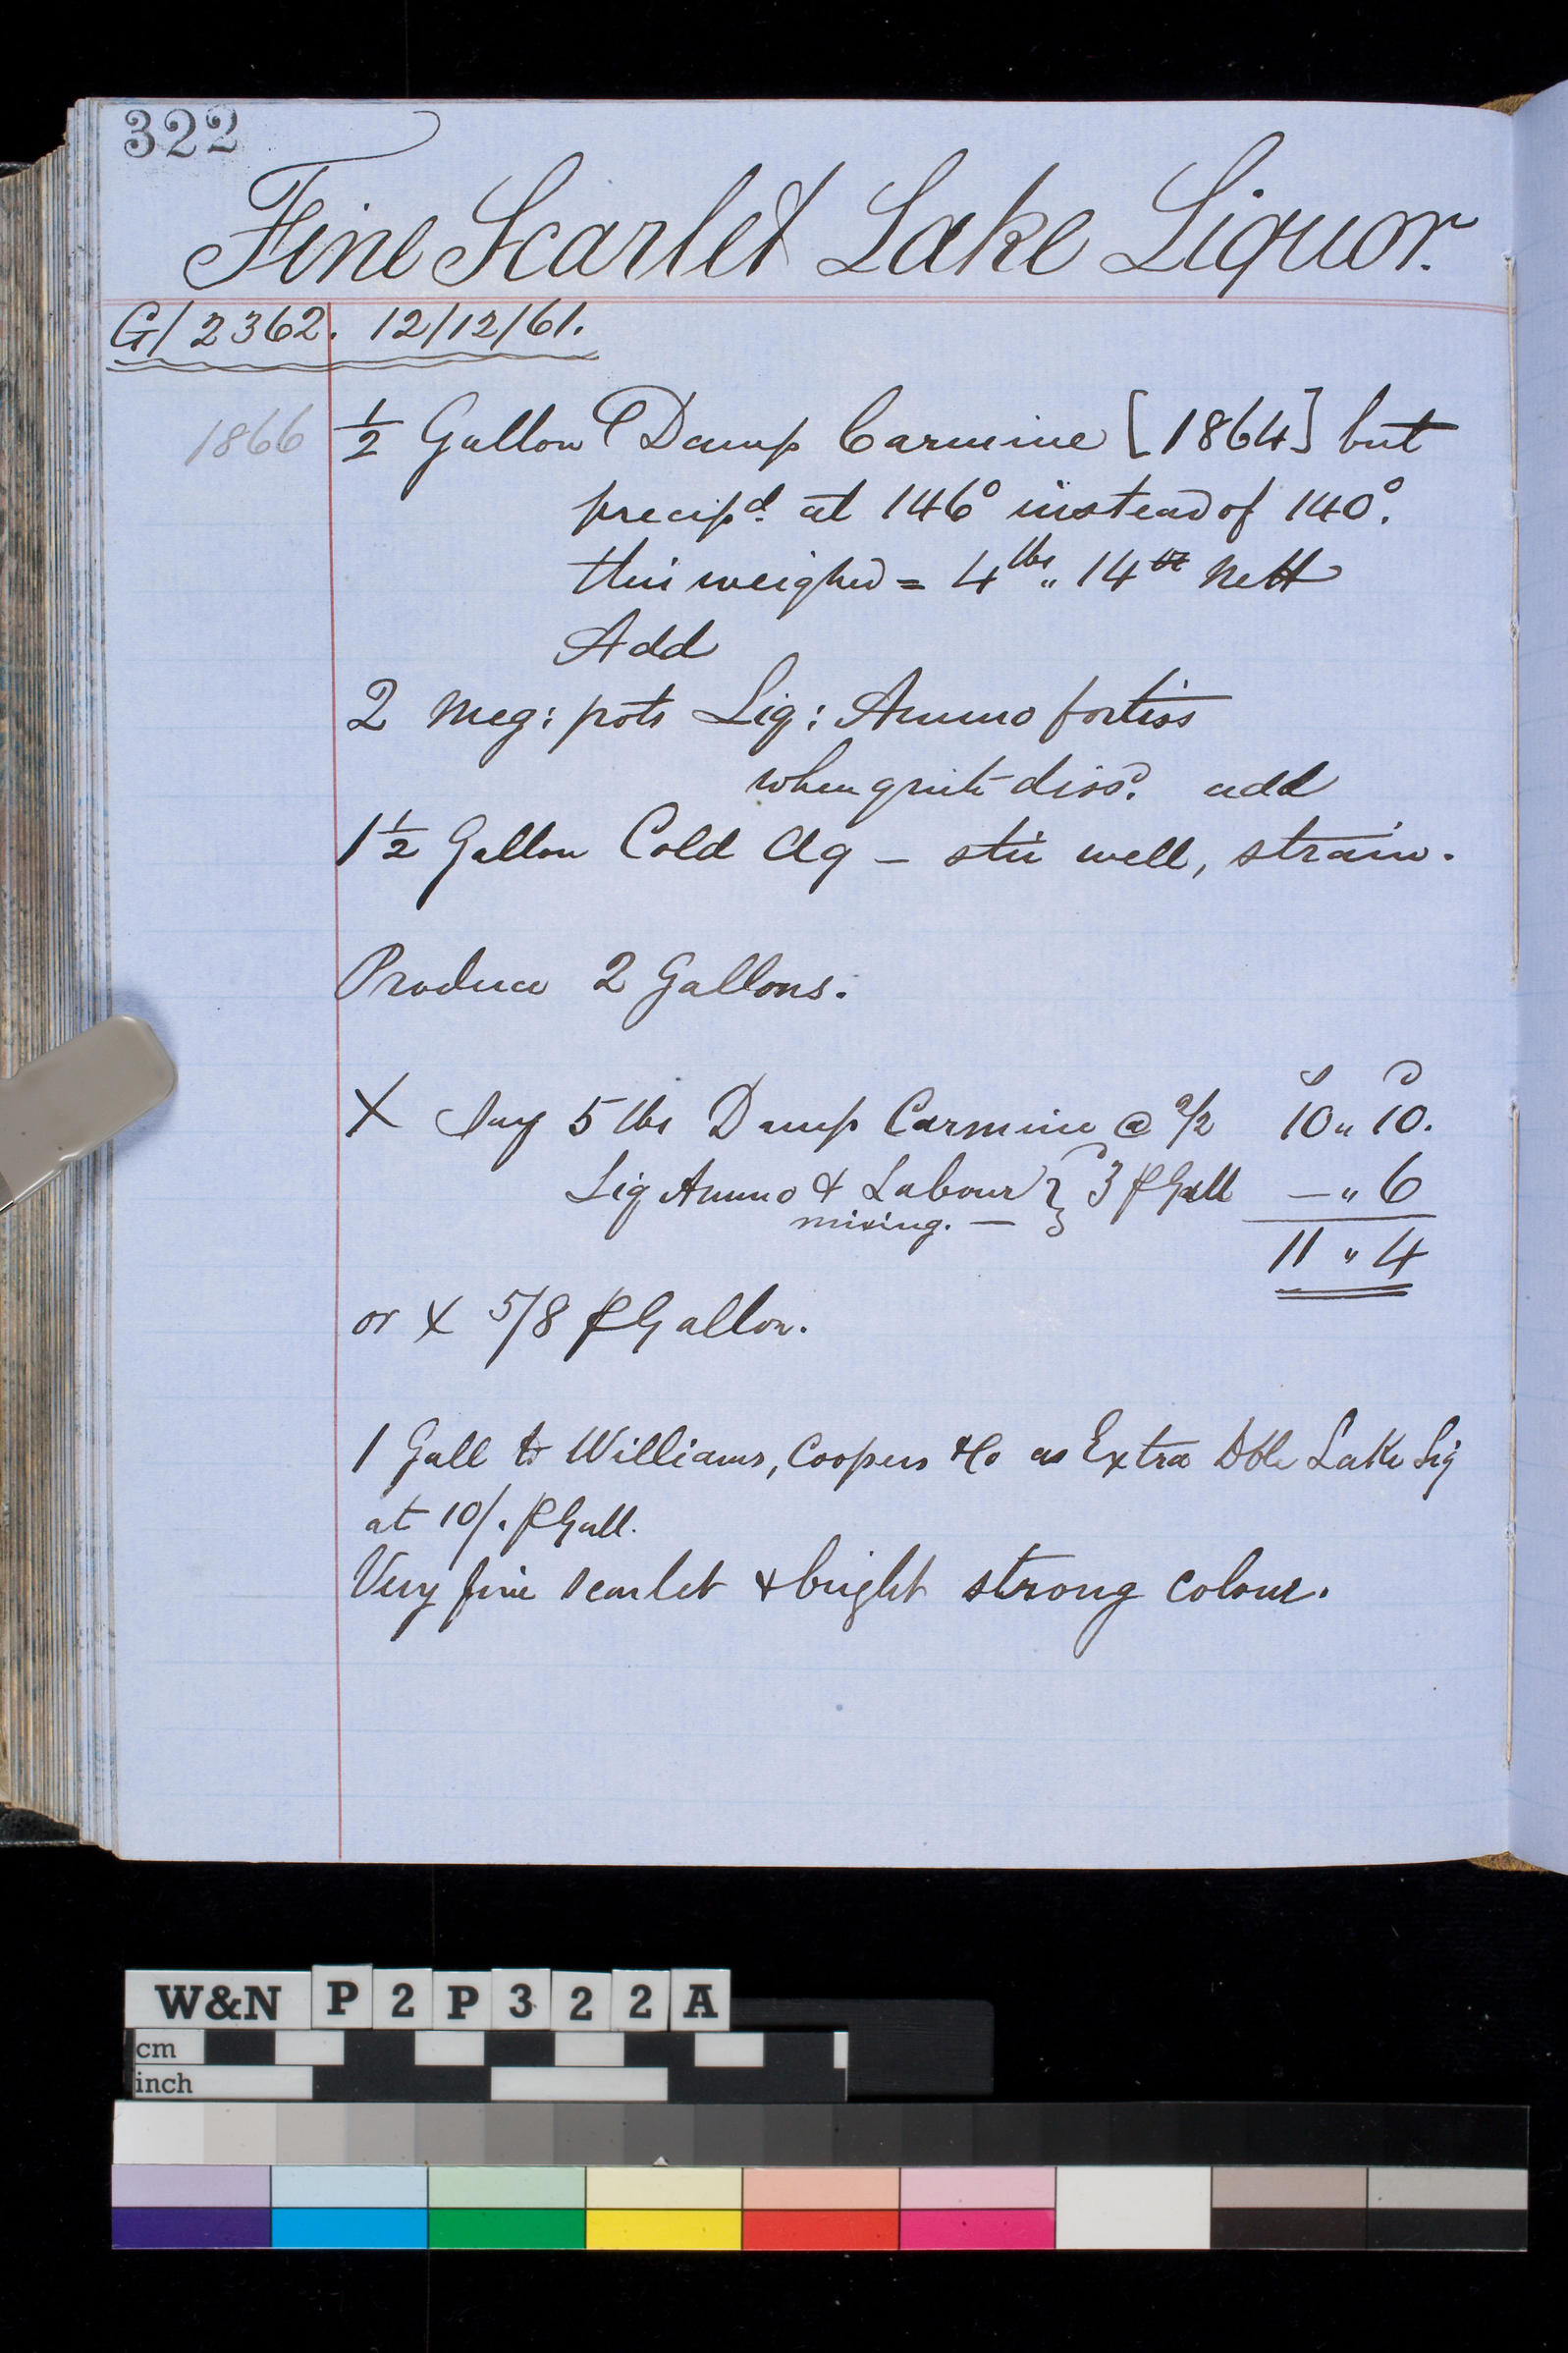 322
Fine Scarlet Lake Liquor.
G/2362. 12/12/61.
1866 ½ Gallon Damp Carmine [1864] but
precipd. at 146° instead of 140°.
this weighed = 4 lbs „ 14 oz Nett
Add
2 Meg: pots Liq: Ammo fortiss
when quite dissd. add
1½ Gallon Cold Aq — stir well, strain.
Produce 2 Gallons.
X Say 5 lbs Damp Carmine @ 2/2 10 „ 10.
Liq Ammo & Labour } 3 ⅌ Gall — „ 6
mixing. —
11 „ 4
or X 5/8 ⅌ Gallon.
1 Gall to Williams, Coopers & Co as Extra Dble Lake Liq
at 10/. ⅌ Gall.
Very fine scarlet & bright strong colour.
W&N P2P322A
cm
inch